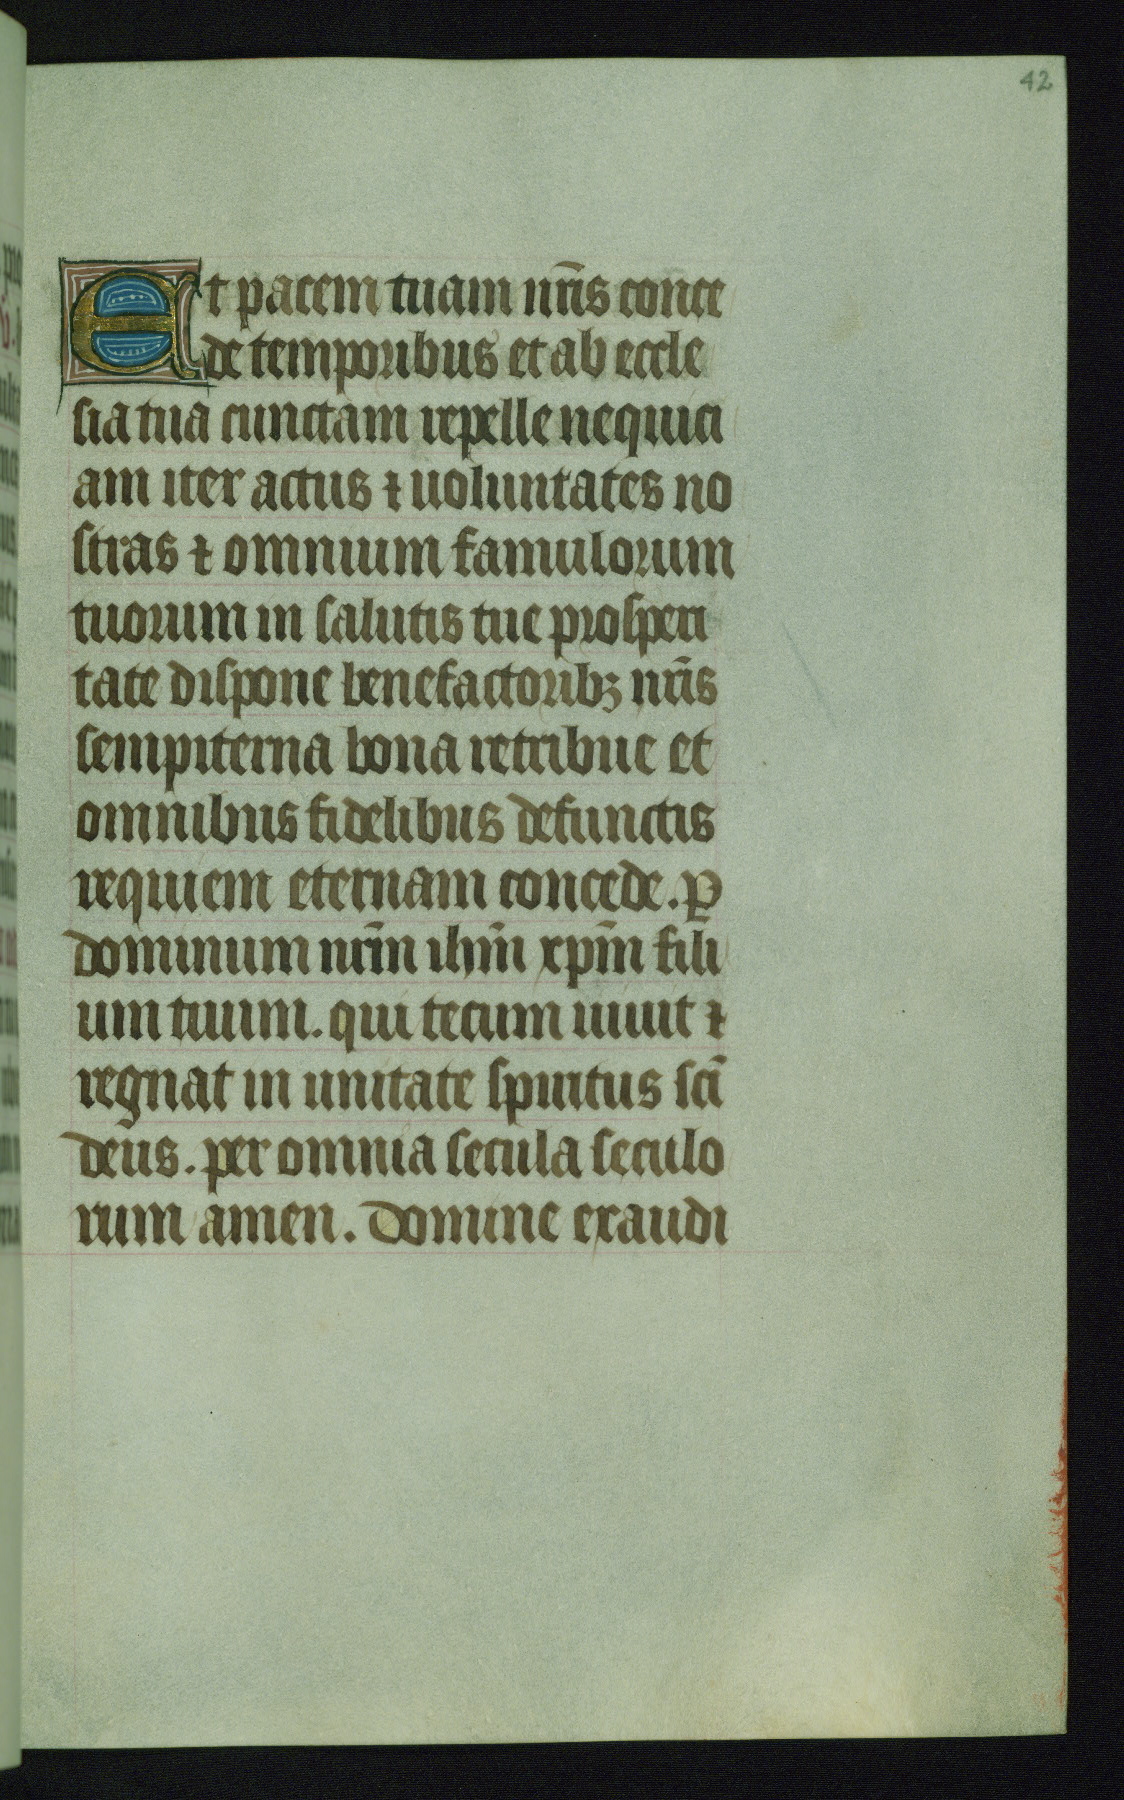 42
Et pacem tuam nr̄is conce
de temporibus et ab eccle
sia tua cunctam repelle nequici
am iter actus ⁊ uoluntates no
stras ⁊ omnium famulorum
tuorum in salutis tue prosperi
tate dispone benefactoribꝫ nr̄is
sempiterna bona retribue et
omnibus fidelibus defunctis
requiem eternam concede. ꝑ
dominum nr̄m ihm̄ xpm̄ fili
um tuum. qui tecum uiuit ⁊
regnat in unitate spiritus sc̄i
deus. per omnia secula seculo
rum amen. Domine exaudi